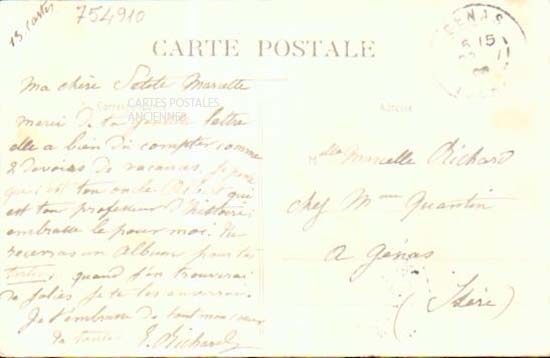 13 cartes
754910
CARTE POSTALE
GENAS
15
ma chère petite Marcelle
CARTES POSTALES
ANCIENNES
ADRESSE
merci de ta lettre
elle a bien dû compter comme
2 devoirs de vacances, je
qui est ton oncle qui
est ton professeur d'histoire
embrasse le pour moi. Tu
recevras un album pour tes
cartes, quand j'en trouverai
de jolies je te les enverrai.
Je t'embrasse de tout mon cœur
ta tante
Richard
Mlle Marcelle Richard
chez Mme Quantin
à Génas
(Isère)